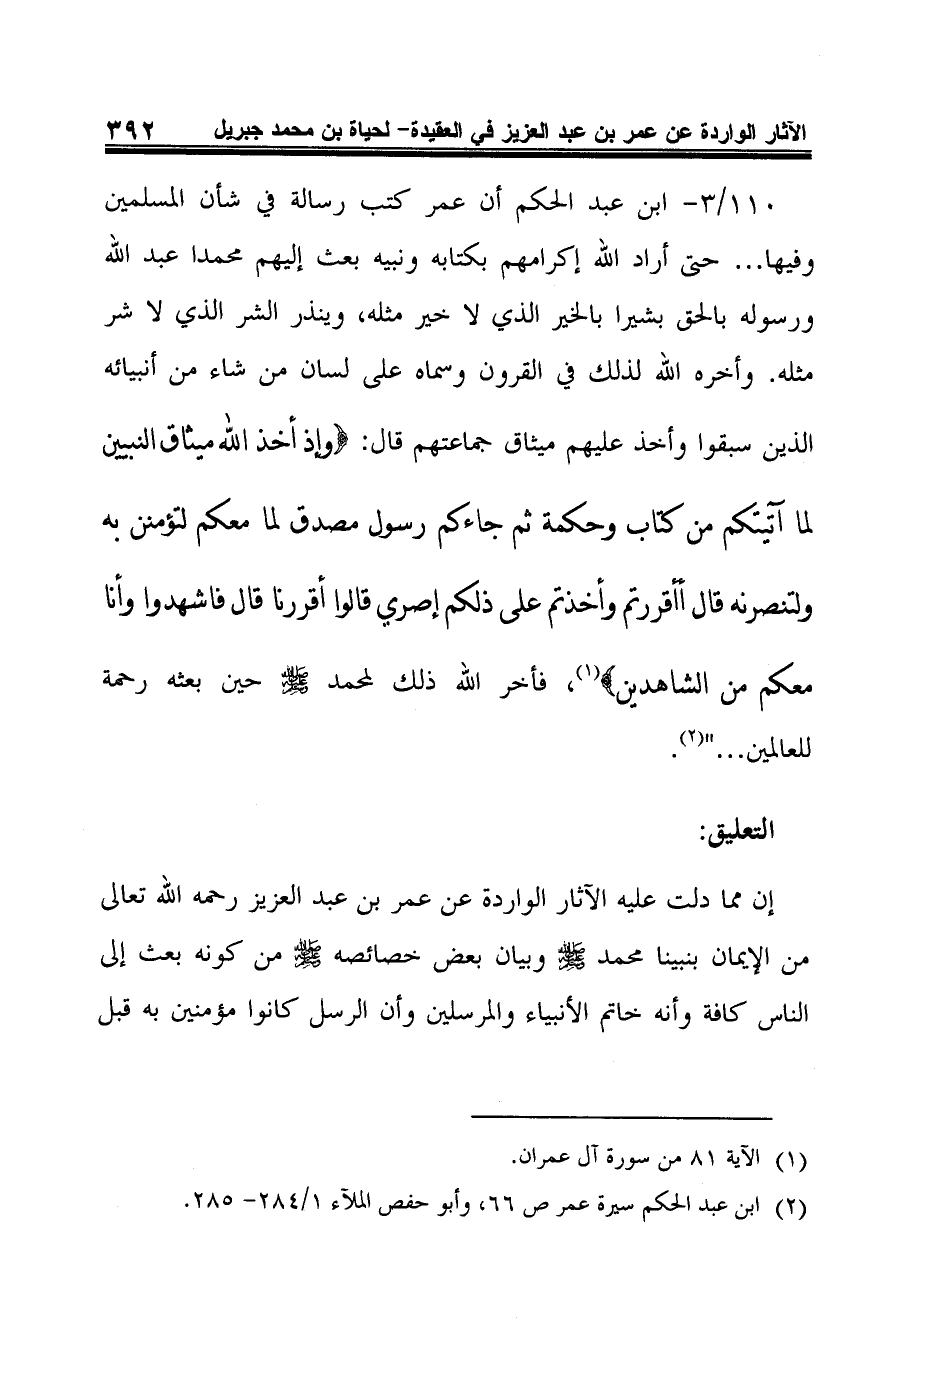 الآثار الواردة عن عمر بن عبد العزيز في العقيدة- لحياة بن محمد جبريل ٣٩٢
٣/١١٠- ابن عبد الحكم أن عمر كتب رسالة في شأن المسلمين
وفيها... حتى أراد الله إكرامهم بكتابه ونبيه بعث إليهم محمدا عبد الله
ورسوله بالحق بشيرا بالخير الذي لا خير مثله، وينذر الشر الذي لا شر
مثله. وأخره الله لذلك في القرون وسماه على لسان من شاء من أنبيائه
الذين سبقوا وأخذ عليهم ميثاق جماعتهم قال: ﴿وإذ أخذ الله ميثاق النبيين
لما آتيتكم من كتاب وحكمة ثم جاءكم رسول مصدق لما معكم لتؤمنن به
ولتنصرنه قال أأقررتم وأخذتم على ذلكم إصري قالوا أقررنا قال فاشهدوا وأنا
معكم من الشاهدين﴾(١)، فأخر الله ذلك لمحمد ﷺ حين بعثه رحمة
للعالمين..."(٢).
التعليق:
إن مما دلت عليه الآثار الواردة عن عمر بن عبد العزيز رحمه الله تعالى
من الإيمان بنبينا محمد ﷺ وبيان بعض خصائصه ﷺ من كونه بعث إلى
الناس كافة وأنه خاتم الأنبياء والمرسلين وأن الرسل كانوا مؤمنين به قبل
(١) الآية ٨١ من سورة آل عمران.
(٢) ابن عبد الحكم سيرة عمر ص ٦٦، وأبو حفص الملآء ٢٨٤/١- ٢٨٥.